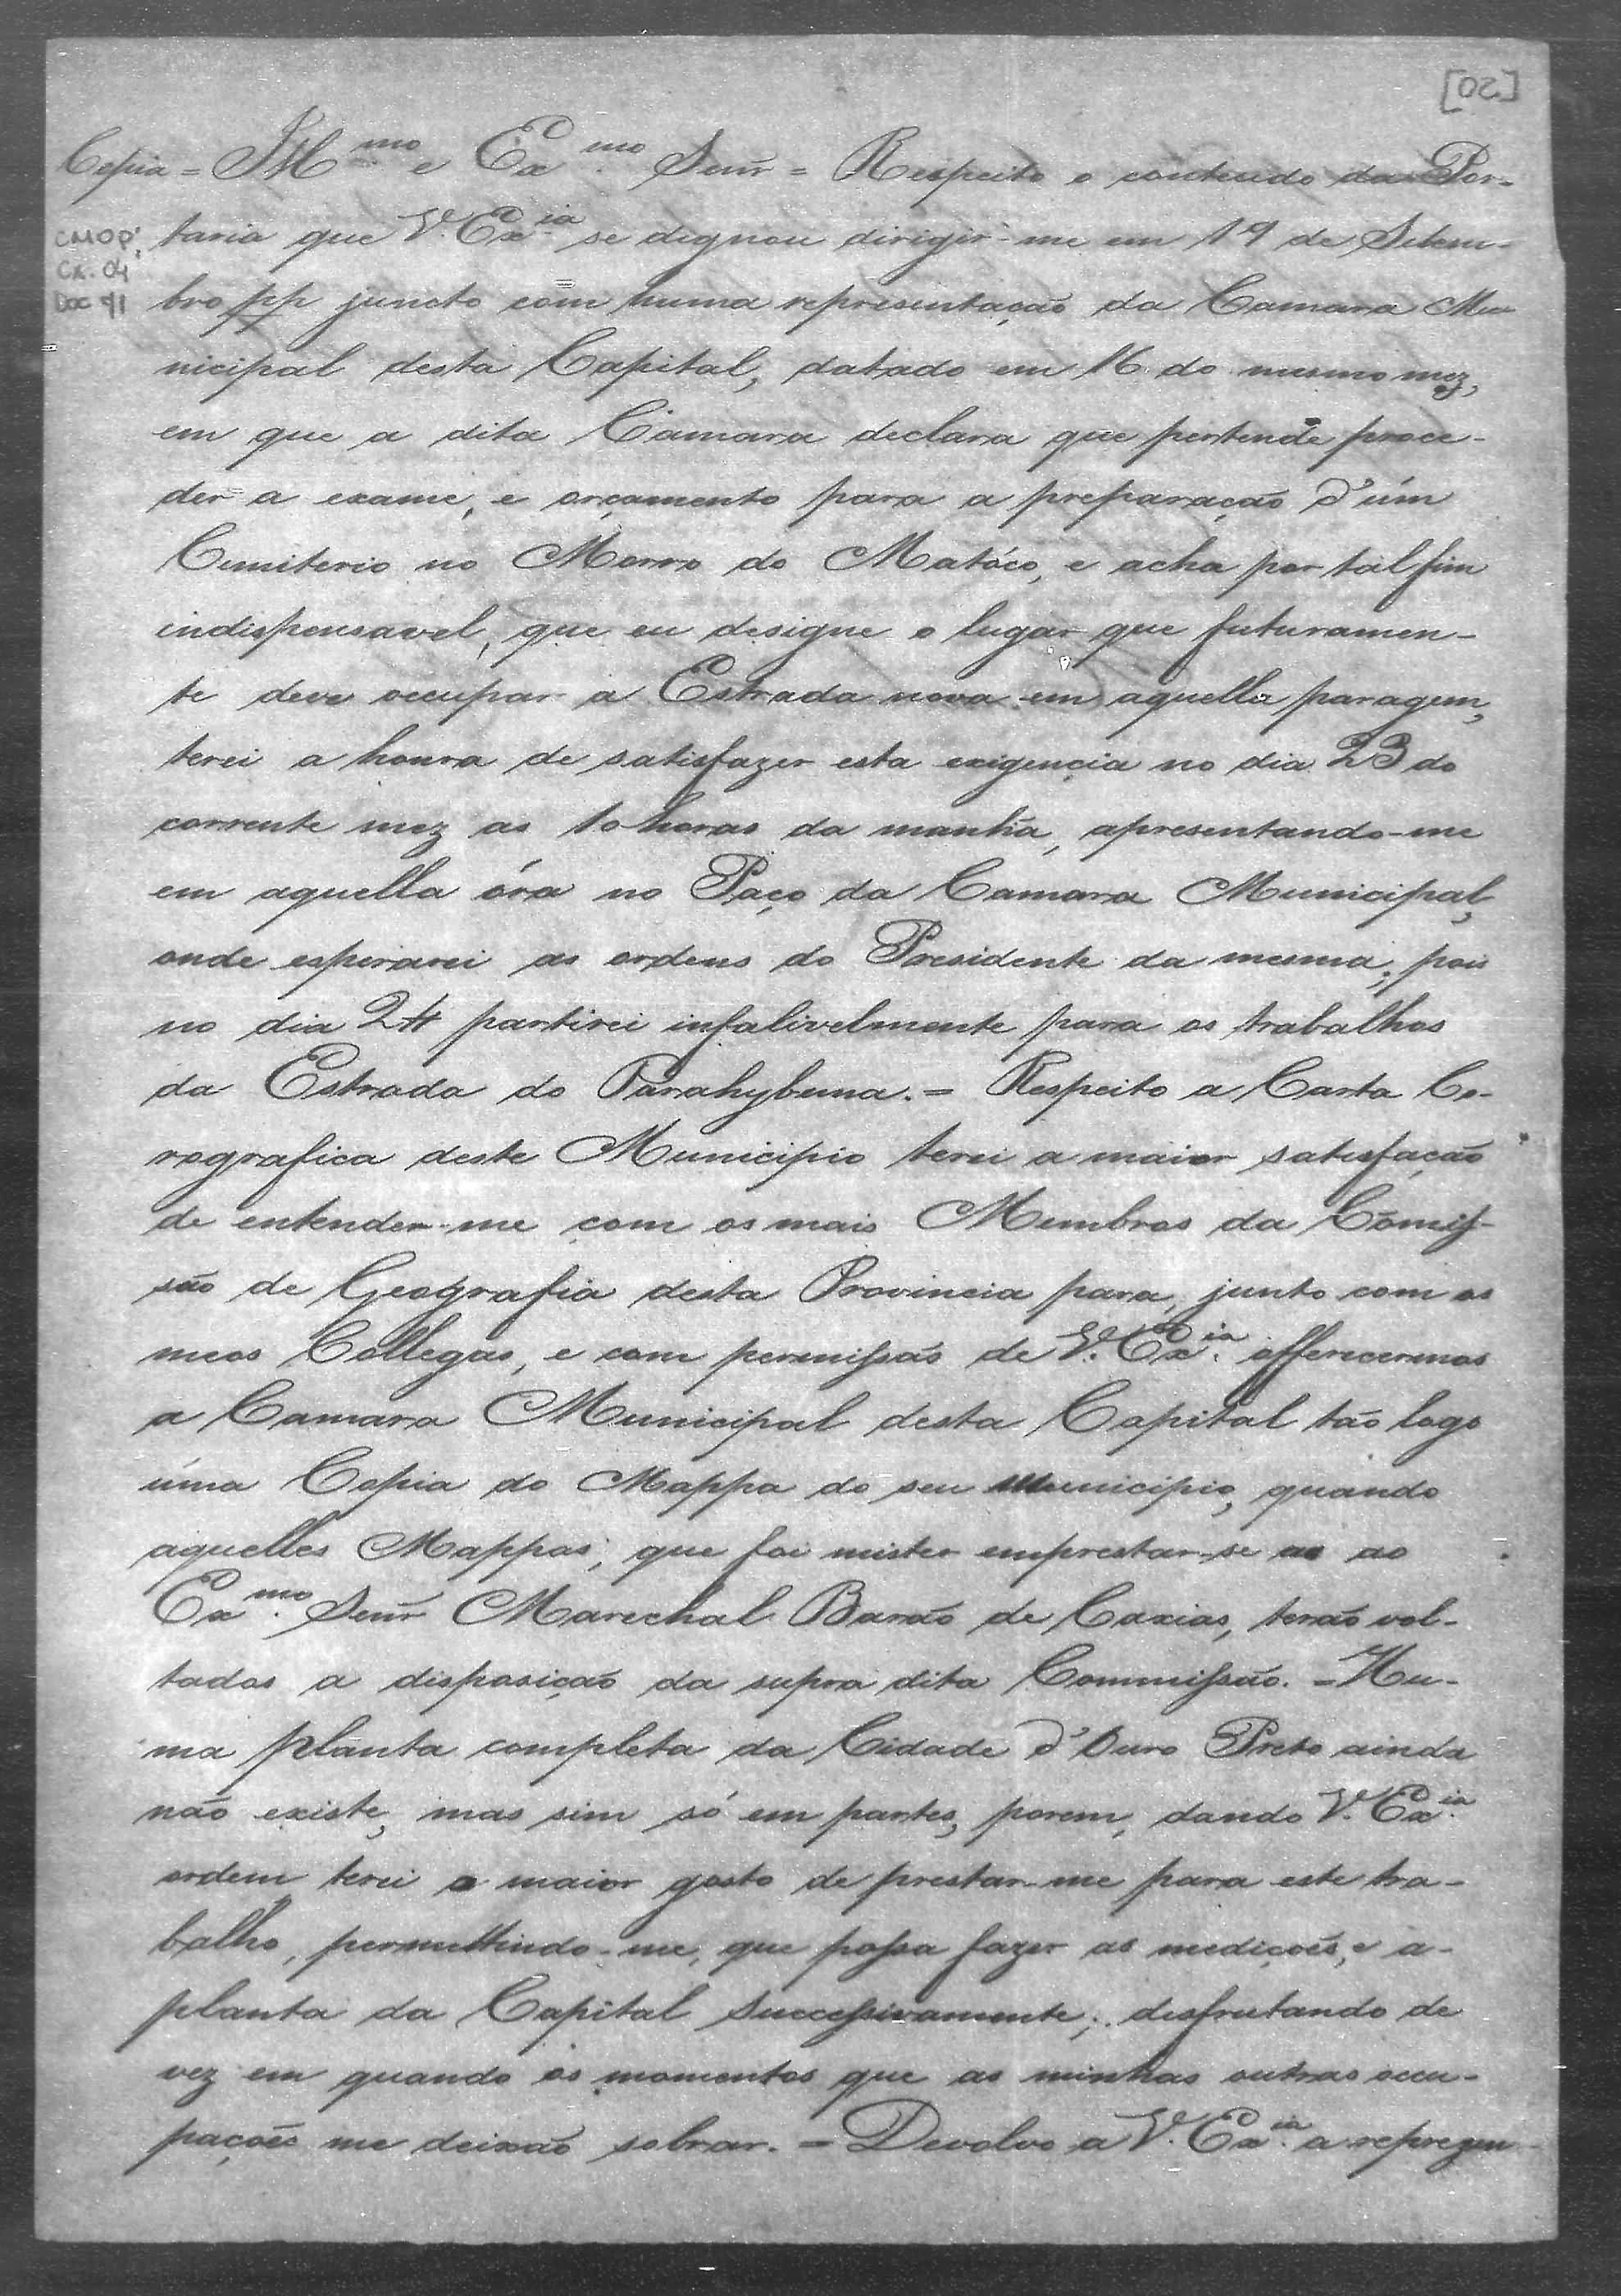 [02]
Copia = Ill.mo e Ex.mo Senr = Respeito o conteudo da Por-
CMOP,
Cx. 04
Doc 41
taria que V. Ex.ia se dignou dirigir-me em 19 de Setem-
bro pp juncto com huma representação da Camara Mu-
nicipal desta Capital, datado em 16 do mesmo mez,
em que a dita Camara declara que pertende proce-
der a exame, e orçamento para a preparação d'úm
Cemiterio no Morro do Matóco, e acha por tal fim
indispensavel, que eu designe o lugar que futuramen-
te deve occupar a Estrada nova em aquella paragem,
terei a honra de satisfazer esta exigencia no dia 23 do
corrente mez as 10 horas da manhã, apresentando-me
em aquella óra no Paço da Camara Municipal,
onde esperarei as ordens do Presidente da mesma; pois
no dia 24 partirei infalivelmente para os trabalhos
da Estrada do Parahybuna. = Respeito a Carta Co-
rografica deste Municipio terei a maior satisfação
de entender-me com os mais Membros da Comis-
são de Geografia desta Provincia para, junto com os
meos Collegas, e com permissão de V. Ex.ia offerecermos
a Camara Municipal desta Capital tão logo
uma Copia do Mappa do seu Municipio, quando
aquelles Mappas, que foi mister emprestar-se ao
Ex.mo Senr Marechal Barão de Caxias, terão vol-
tados a disposição da supra dita Commissão. = Hu-
ma planta completa da Cidade d'Ouro Preto ainda
não existe, mas sim só em partes, porem, dando V. Ex.ia
ordem terei o maior gosto de prestar-me para este tra-
balho, permettindo-me, que possa fazer as medições, e a-
planta da Capital successivamente; disfrutando de
vez em quando os momentos que as minhas outras occu-
pações me deixão sobrar. = Devolvo a V. Ex.ia a reprezen-